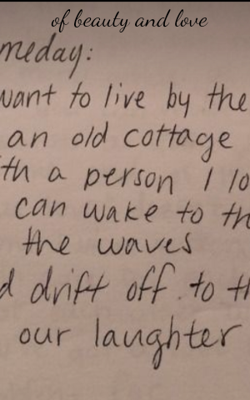 of beauty and love
meday:
want to live by the
an old cottage
th a person I lo
can wake to th
the waves
d drift off to th
our laughter